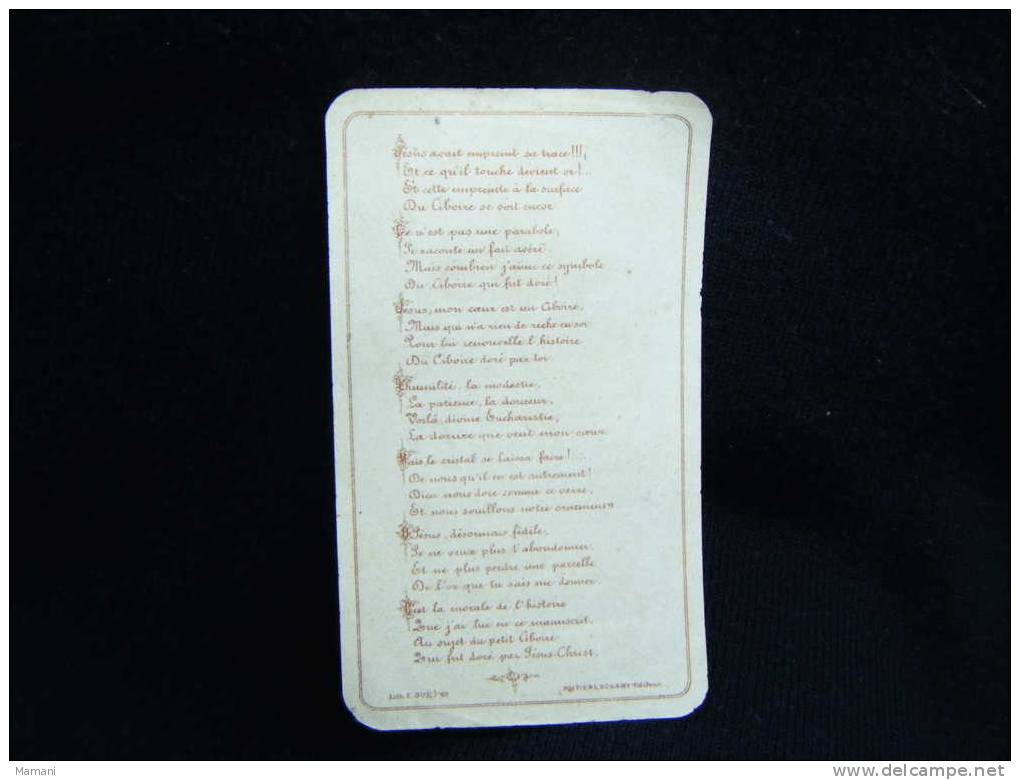 Jésus avait empreint sa trace!!!,
Et ce qu'il touche devient or!...
Et cette empreinte à la surface
Du Ciboire se voit encor.
Ce n'est pas une parabole,
Je raconte un fait avéré.
Mais combien j'aime ce symbole
Du Ciboire qui fut doré!
Jésus, mon cœur est un Ciboire,
Mais qui n'a rien de riche en soi
Pour lui renouvelle l'histoire
Du Ciboire doré par toi.
L'humilité, la modestie,
La patience, la douceur,
Voilà, divine Eucharistie,
La dorure que veut mon cœur.
Mais le cristal se laissa faire!...
De nous qu'il en est autrement!
Dieu nous dore comme ce verre,
Et nous souillons notre ornement.
O Jésus, désormais fidèle,
Je ne veux plus t'abandonner,
Et ne plus perdre une parcelle
De l'or que tu sais me donner.
C'est la morale de l'histoire
Que j'ai lue en ce manuscrit,
Au sujet du petit Ciboire
Qui fut doré par Jésus-Christ.
Lith. E.
POITIERS,
Mamani
delcampe.net